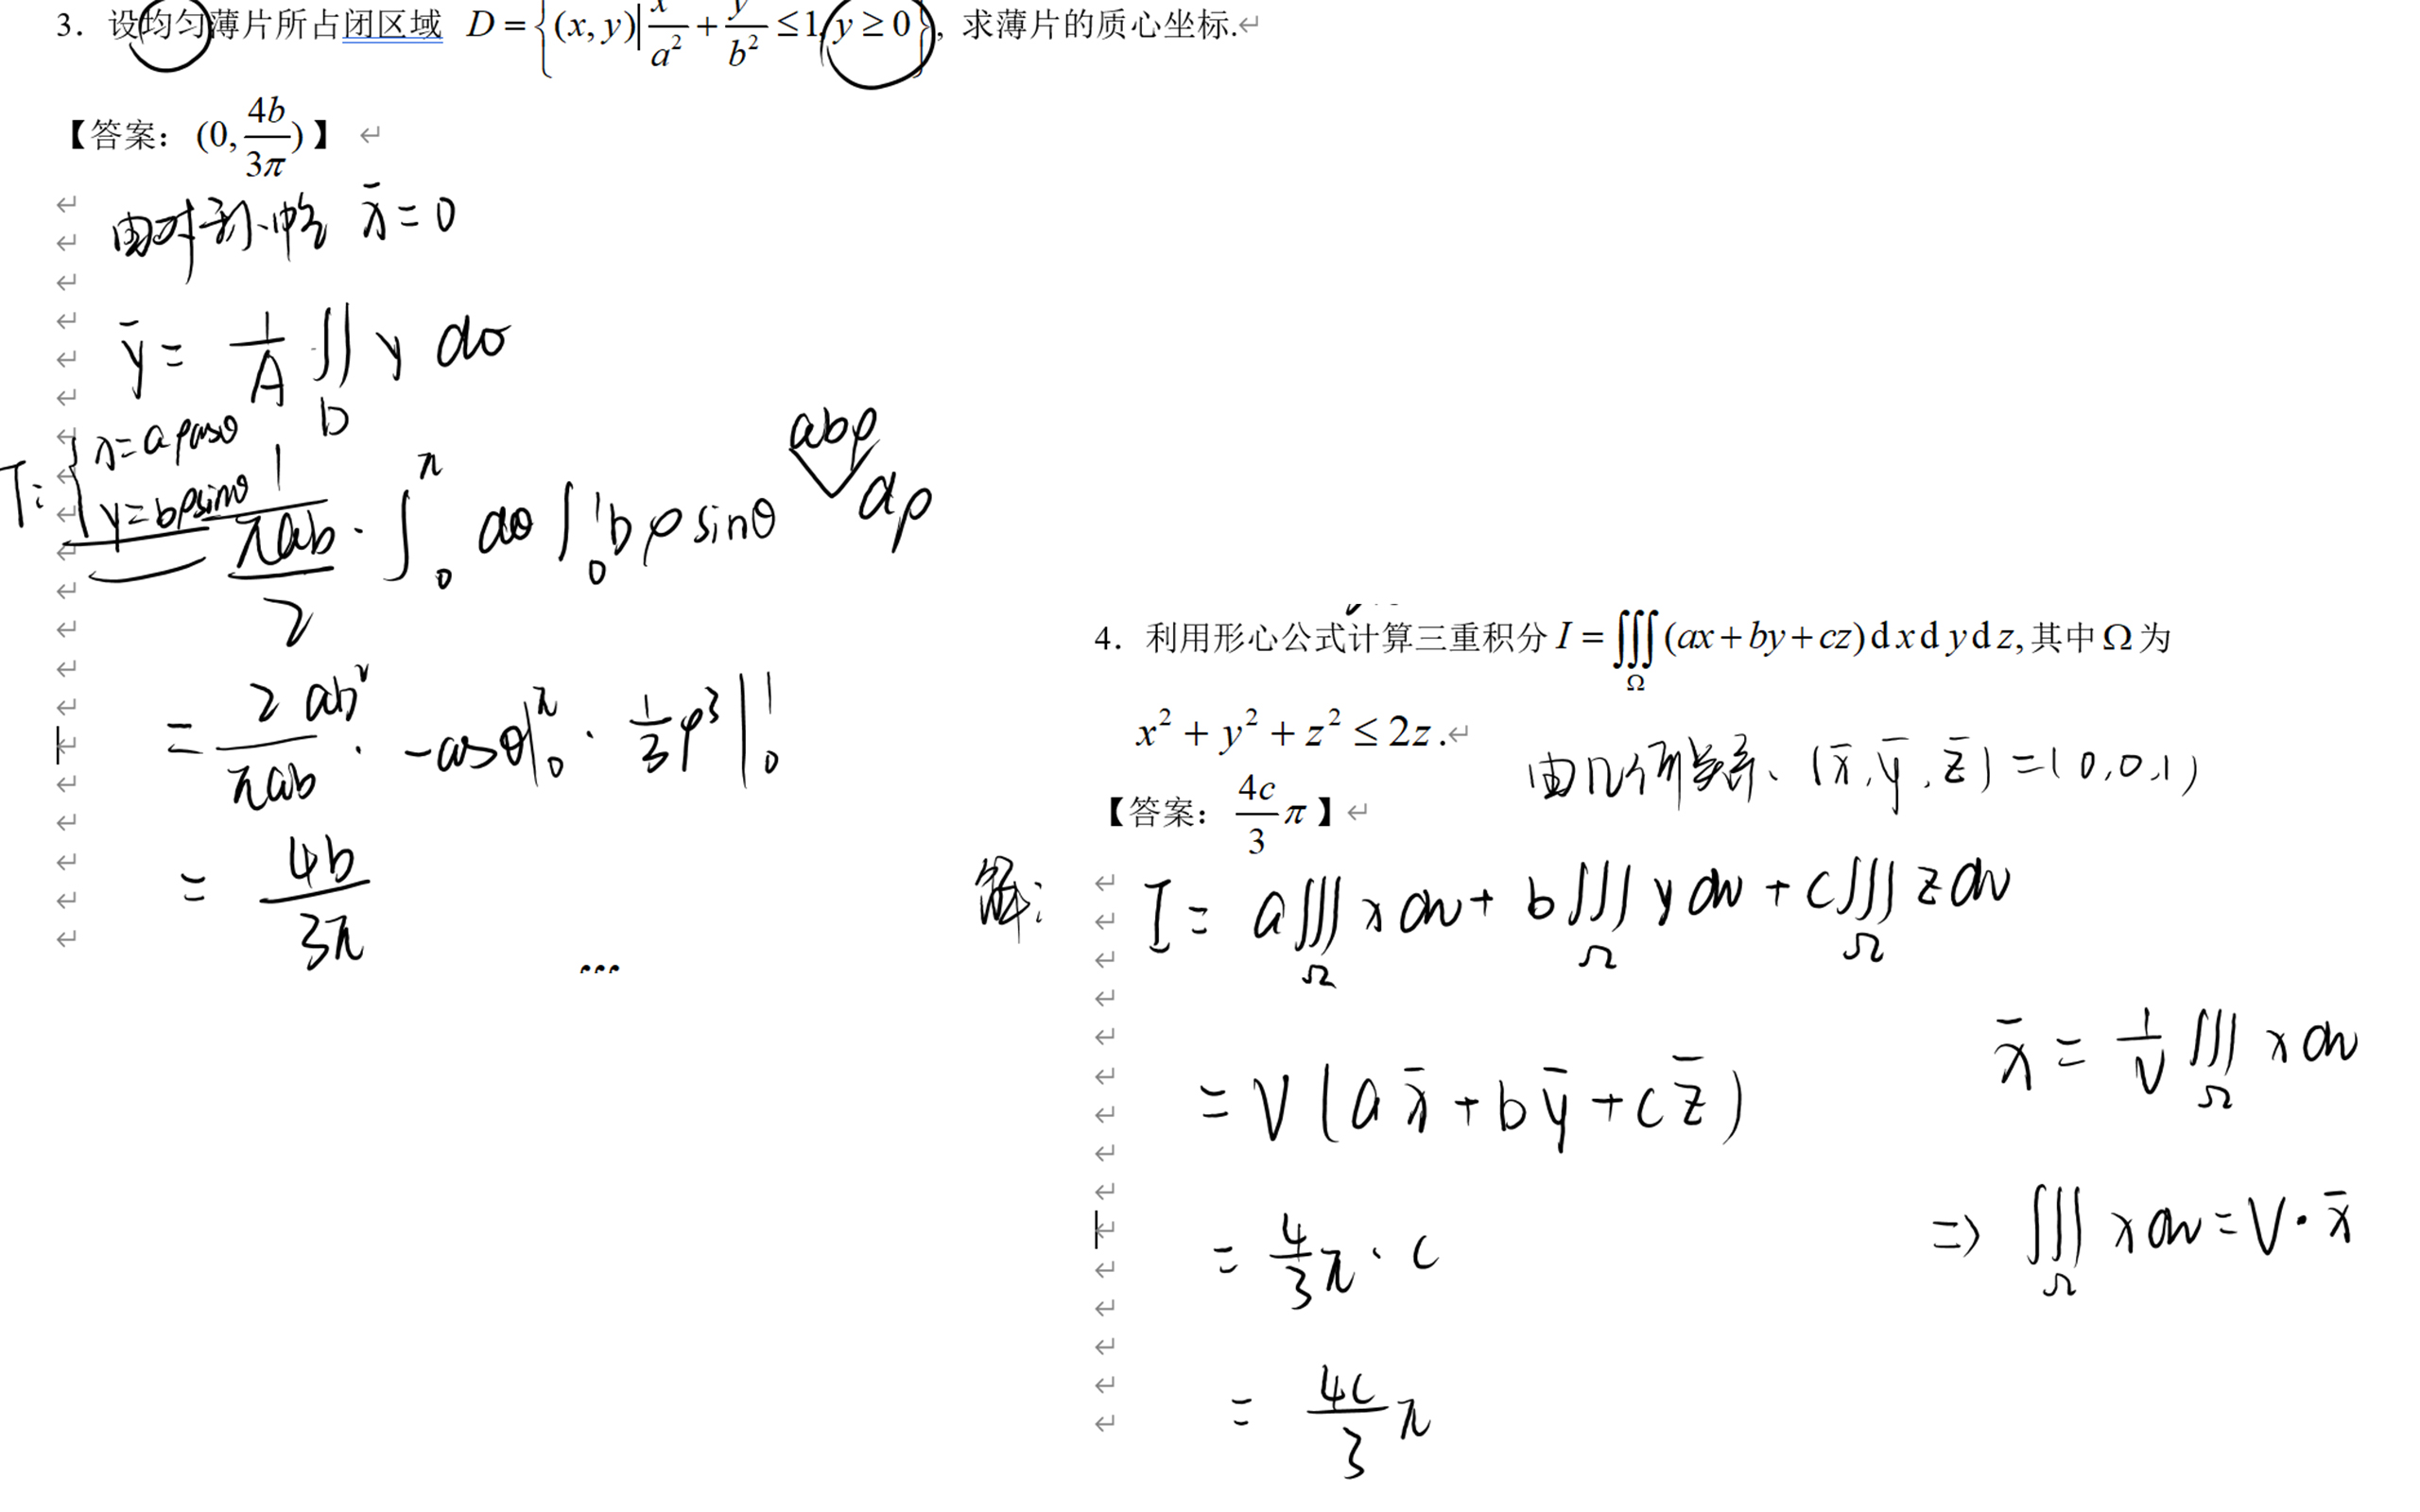 3. 设均匀薄片所占闭区域 D={(x,y)|x²/a²+y²/b²≤1, y≥0}, 求薄片的质心坐标.
【答案: (0,4b/3π)】
由对称性 x̄=0
ȳ= 1/A ∬_D y dσ
T: {x=aρcosθ
y=bρsinθ
1/(πab/2) · ∫_0^π dθ ∫_0^1 bρsinθ abρ dρ
= 2ab²/πab · -cosθ|_0^π · 1/3 ρ³|_0^1
= 4b/3π
4. 利用形心公式计算三重积分 I=∭_Ω (ax+by+cz)dxdydz, 其中Ω为
x²+y²+z²≤2z.
由几何关系、(x̄,ȳ,z̄)=(0,0,1)
【答案: 4c/3 π】
解: I= a∭_Ω x dv+ b∭_Ω y dv + c∭_Ω z dv
x̄ = 1/V ∭_Ω x dv
=V(ax̄+bȳ+cz̄)
⇒ ∭_Ω x dv=V·x̄
= 4/3 π · c
= 4c/3 π